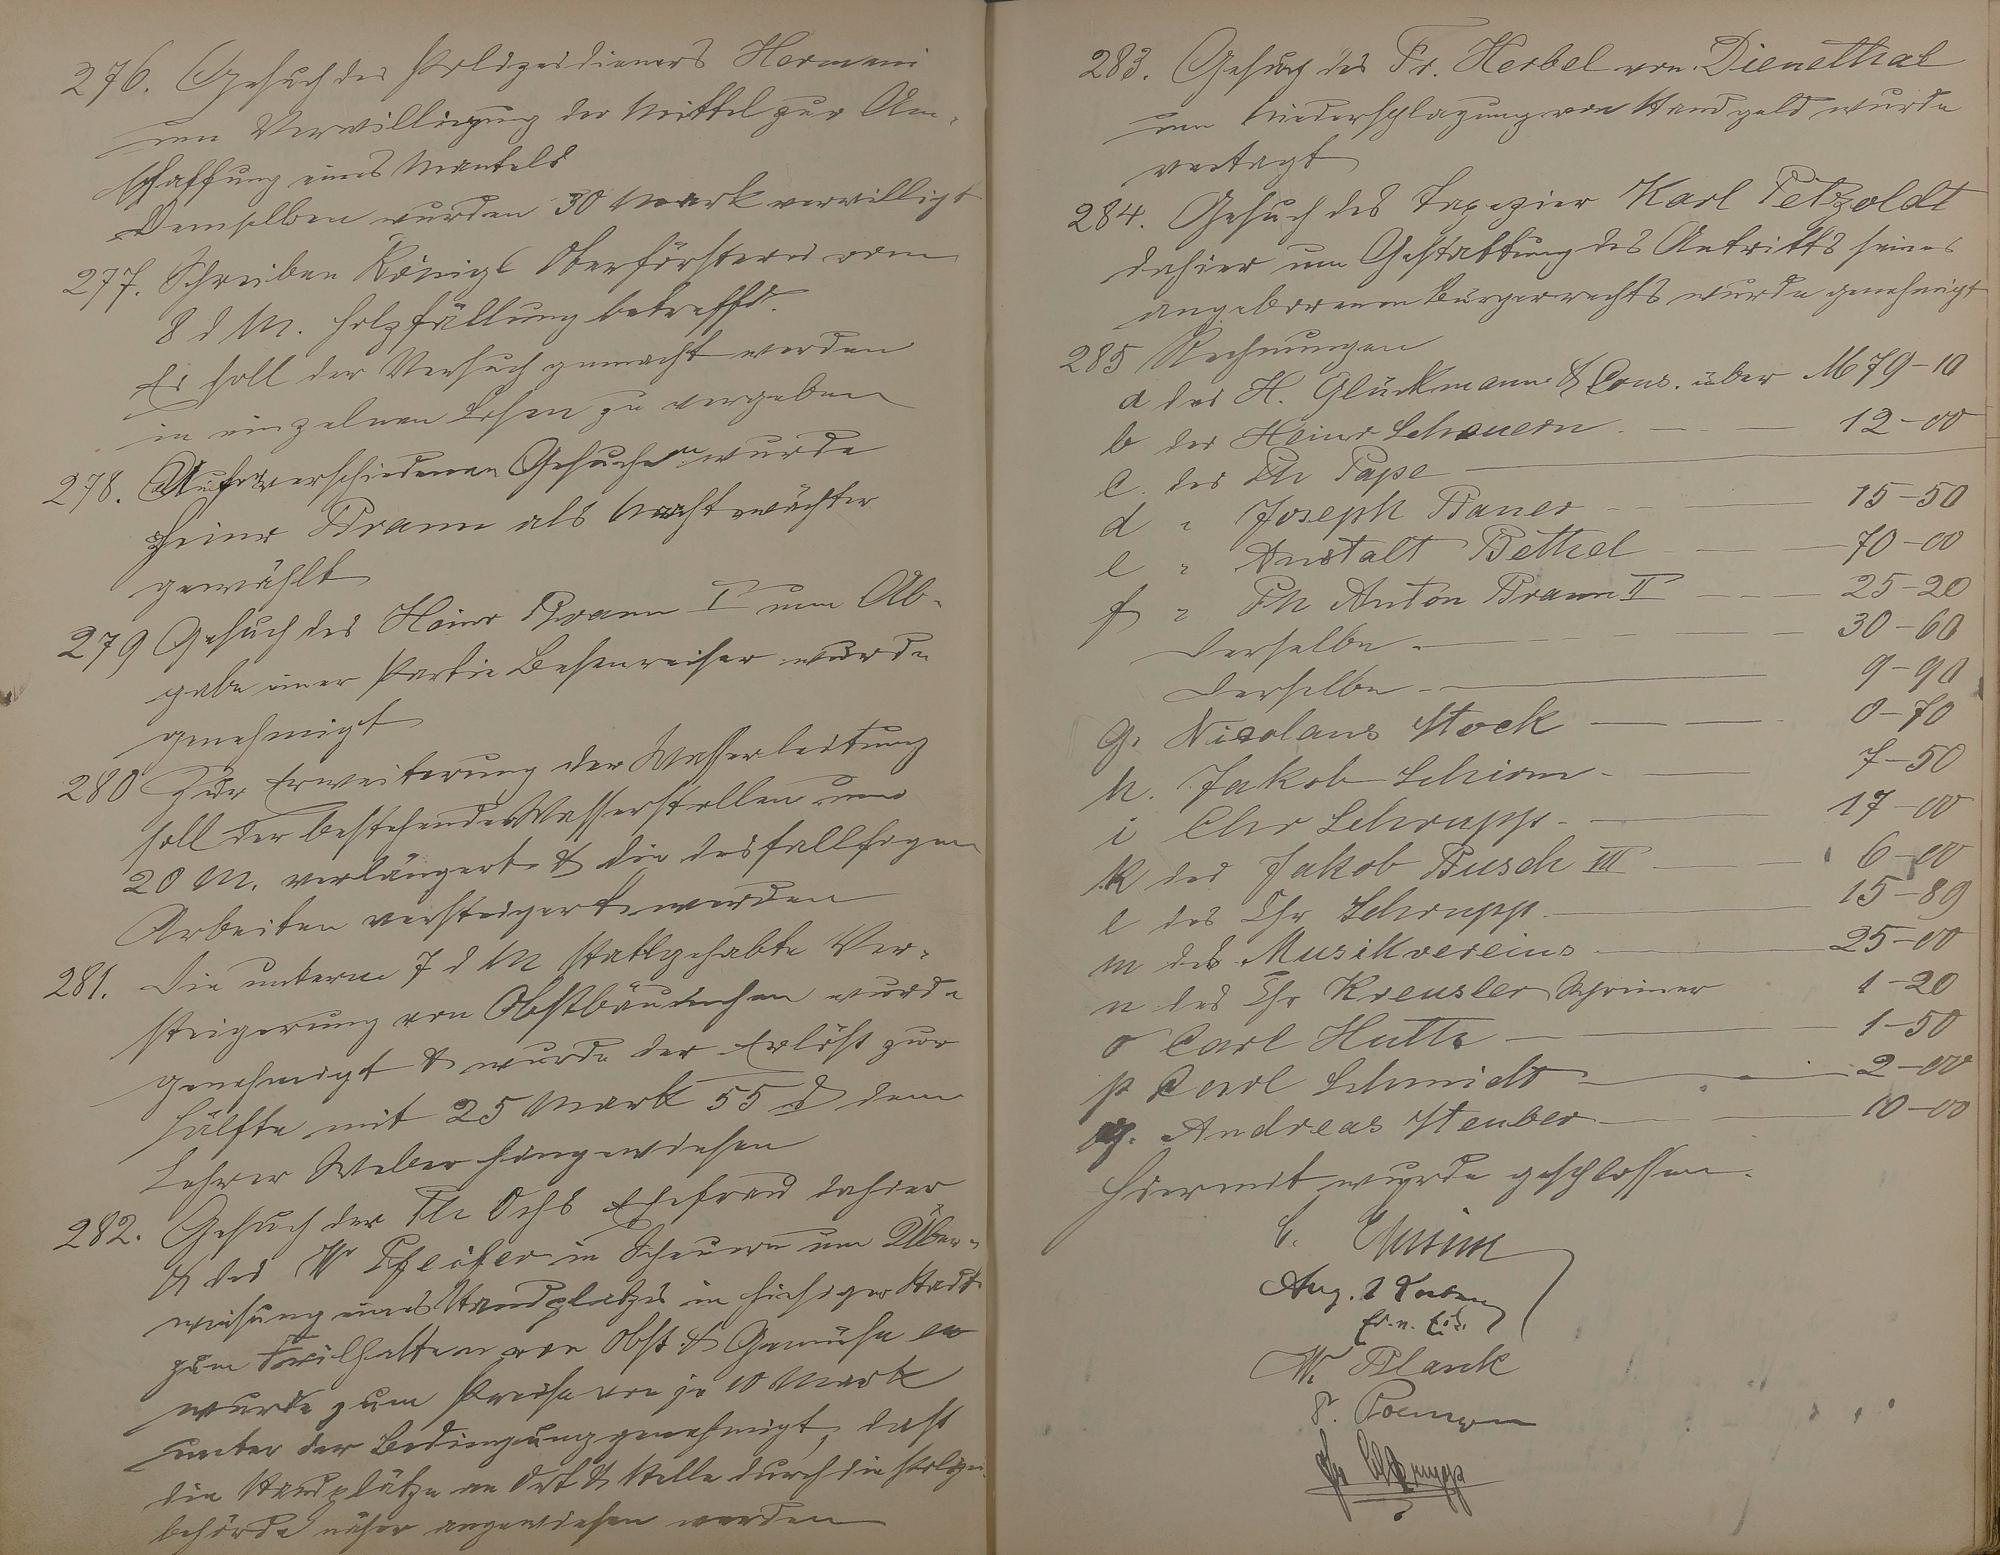 276. Gesuch des Polizeidieners Hermani
um Verwilligung der Mittel zur An-
schaffung eines Mantels
Demselben wurden 30 Mark verwilligt
277. Schreiben Königl Oberförsterei vom
8 d M. Holzfällung betreffd.
Es soll der Versuch gemacht werden
in einzelnen Losen zu vergeben
278. Auf verschiedenen Gesuche wurde
Heinr Braun als Nachtwächter
gewählt
279 Gesuch des Heinr Braun I um Ab-
gabe einer Partie Besenreiser wurde
genehmigt
280 Zur Erweiterung der Wasserleitung
soll der bestehende Wasserstollen um
20 M. verlängert & die desfallsigen
Arbeiten versteigert werden
281. Die unterm 7 d M stattgehabte Ver-
steigerung von Obstbäumchen wurde
genehmigt & wurde der Erlös zur
Hälfte mit 25 Mark 55 ₰ dem
Lehrer Weber hingewiesen
282. Gesuch der Ph Ochs Ehefrau dahier
& des W Pfeifer in Scheuern um Über-
weisung eines Standplatzes in hiesiger Stadt
zum Feilhalten von Obst & Gemüse
wurde zum Preise von je 10 Mark
unter der Bedingung genehmigt, daß
die Standplätze an Ort & Stelle durch die Polizei-
behörde näher angewiesen werden
283. Gesuch des Fr. Herbel von Dienethal
um Niederschlagung von Standgeld wurde
vertagt
284. Gesuch des Tapezier Karl Petzoldt
dahier um Gestattung des Antritts seines
angeborenen Bürgerrechts wurde genehmigt
285 Rechnungen
a des H. Glückmann & Cons. über M 79-10
b des Heinr Schauern 12-00
c. des Ph Pape
d " Joseph Bauer 15-50
e " Anstalt Bethel 70-00
f " Ph Anton Braun II 25-20
Derselbe 30-60
Derselbe 9-90
g. Nicolaus Stock 0-70
h. Jakob Schirm 7-50
i Chr Schrupp 17-00
k des Jakob Busch III 6-00
l des Chr Schrupp 15-89
m des Musikvereins 25-00
n des Chr Kreusler Schreiner 1-20
o Carl Huth 1-50
p Carl Schmidt 2-00
q. Andreas Steuber 10-00
Hiermit wurde geschlossen.
C.
Aug.
W. Blank
P.
Chr Schrupp